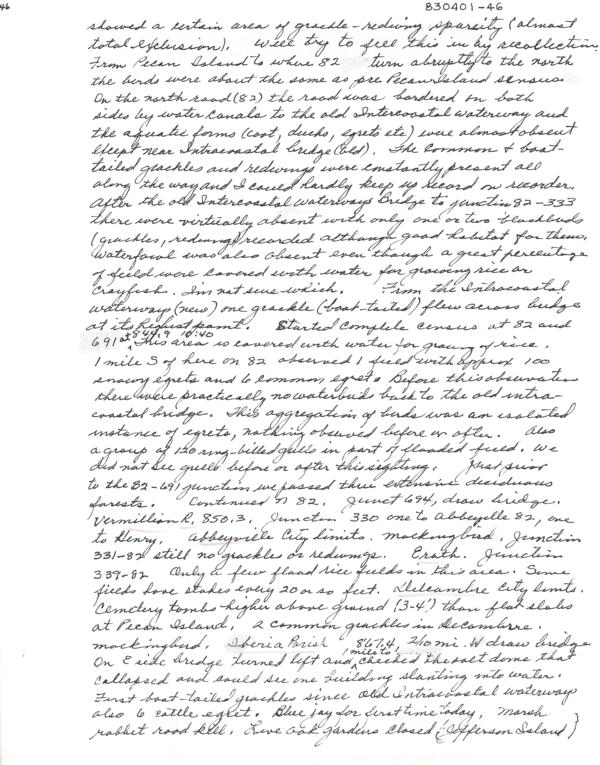 46
830401-46
showed a certain area of grackle-redwing sparsity (almost
total exclusion). Will try to fill this in by recollection.
From Pecan Island to where 82 turn abruptly to the north
the birds were about the same as pre Pecan Island census.
On the north road (82) the road was bordered on both
sides by water canals to the old Intercoastal waterway and
the aquatic forms (coot, ducks, egrets etc) were almost absent
except near Intracoastal bridge (old). The common & boat-
tailed grackles and redwings were constantly present all
along the way and I could hardly keep up record on recorder.
After the old Intercoastal waterways Bridge to junction 82-333
there were virtually absent with only one or two blackbirds
(grackles, redwings) recorded although good habitat for them,
Waterfowl was also absent even though a great percentage
of field were covered with water for growing rice or
Crayfish. I'm not sure which. From the Intracoastal
waterway (new) one grackle (boat-tailed) flew across bridge
at its highest point. Started complete census at 82 and
691 at 844.9 10:40 This area is covered with water for growing of rice.
1 mile S of here on 82 observed 1 field with approx 100
snowy egrets and 6 common egrets. Before this observation
there were practically no waterbirds back to the old intra-
coastal bridge. This aggregation of birds was an isolated
instance of egrets, nothing observed before or after. Also
a group of 120 ring-billed gulls in part of flooded field. We
did not see gulls before or after this sighting. Just prior
to the 82-691 junction we passed thru extensive deciduous
forests. Continued N 82. Junct 694, draw bridge.
Vermillion R. 850.3. Junction 330 one to Abbeyville 82, one
to Henry. Abbeyville City limits. mockingbird, Junction
331-82 still no grackles or redwings. Erath. Junction
339-82 Only a few flood rice fields in this area. Some
fields have stakes every 20 or so feet. Delcambre City limits.
Cemetery tombs higher above ground (3-4') than flat slabs
at Pecan Island. 2 common grackles in Decambre.
mockingbird. Iberia Parish 867.4, 2:10 mi. W draw bridge
On E side bridge turned left and, mile to, checked the salt dome that
collapsed and could see one building slanting into water.
First boat-tailed grackles since old Intracoastal waterways
also 6 cattle egret. Blue jay for first time today, marsh
rabbit road kill. Live oak gardens closed (Jefferson Island)